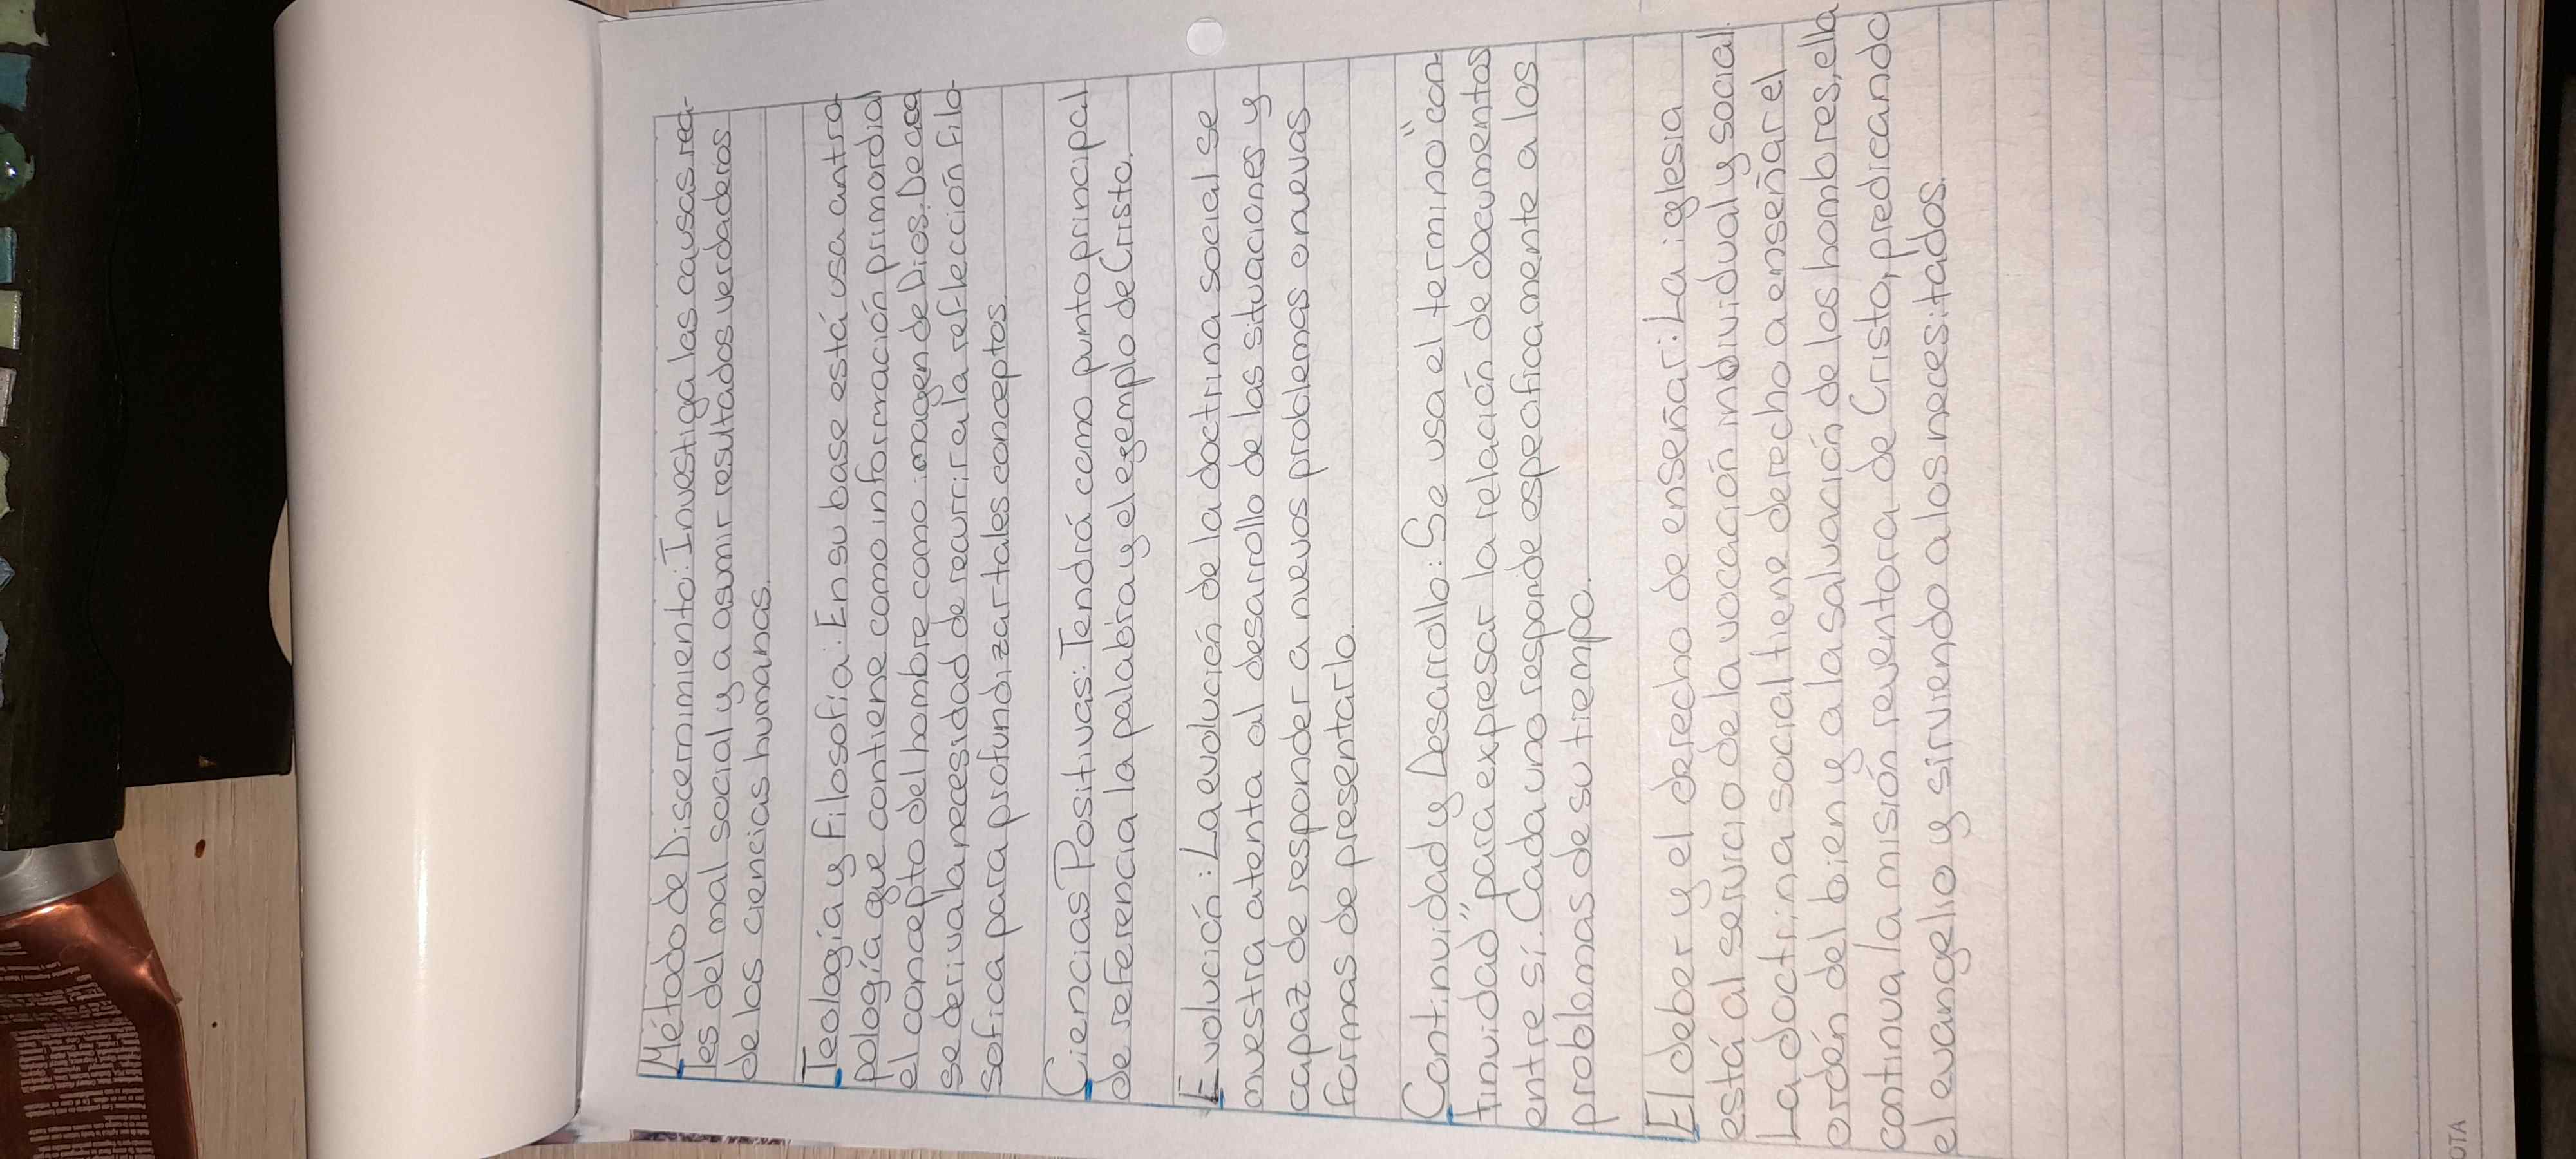 Método de Discernimiento: Investiga las causas rea-
les del mal social y a asumir resultados verdaderos
de las ciencias humanas.
Teología y filosofía: En su base está usa antro
pología que contiene como información primordial
el concepto del hombre como imagen de Dios. De aca
se deriva la necesidad de recurrir a la reflección filo
sofica para profundizar tales conceptos.
Ciencias Positivas: Tendrá como punto principal
de referencia la palabra y el egemplo de Cristo.
Evolución: La evolución de la doctrina social se
muestra atenta al desarrollo de las situaciones y
capaz de responder a nuevos problemas o nuevas
formas de presentarlo.
Continuidad y Desarrollo: Se usa el termino "con
tinuidad" para expresar la relación de documentos
entre sí. Cada uno responde especificamente a los
problemas de su tiempo.
El deber y el derecho de enseñar: La iglesia
está al servicio de la vocación individual y social.
La doctrina social tiene derecho a enseñar el
ordén del bien y a la salvación de los hombres, ella
continua la misión reventora de Cristo, predicando
el evangelio y sirviendo a los necesitados.
OTA